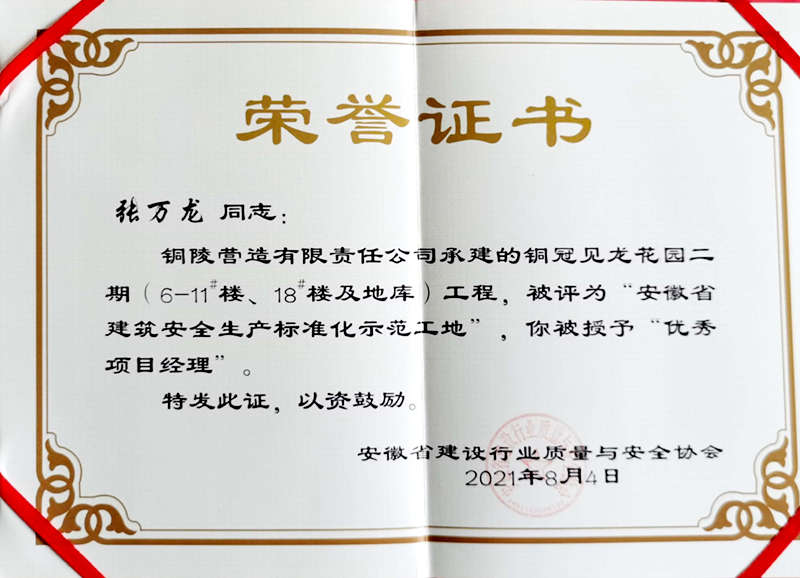 荣誉证书
张万龙 同志：
铜陵营造有限责任公司承建的铜冠见龙花园二
期（6-11#楼、18#楼及地库）工程，被评为“安徽省
建筑安全生产标准化示范工地”，你被授予“优秀
项目经理”。
特发此证，以资鼓励。
安徽省建设行业质量与安全协会
2021年8月4日